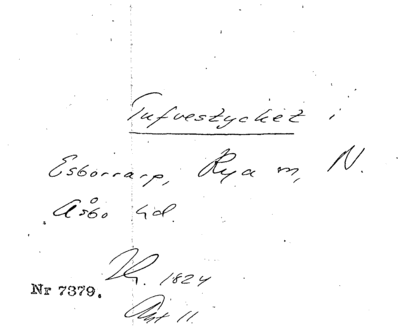 Tufvestycket i
Esborrarp, Rya m, N.
Åsbo hd.
1824
Nr 7379.
Akt 11